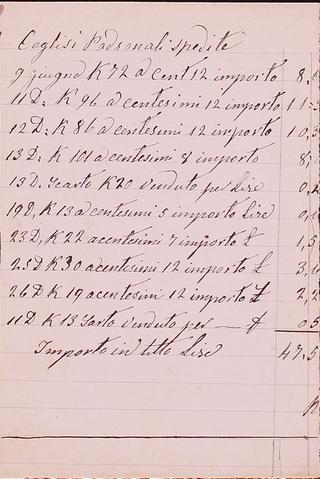 Ceglisi Padronali spedite
9 giugno K 72 a cent 12 importo 8,
11 D: K 96 a centesimi 12 importo 11
12 D: K 86 a centesimi 12 importo 10,3
13 D: K 101 a centesimi 8 importo 8,
13 D. Scarto K 20 venduto per Lire 0,
19 D, K 13 a centesimi 5 importo Lire 0,6
23 D, K 22 a centesimi 7 importo £ 1,5
25 D K 30 a centesimi 12 importo £ 3,6
26 D K 19 a centesimi 12 importo £ 2,2
11 D K 13 Scarto venduto per — £ 0 5
Importo in tutto Lire 47.5